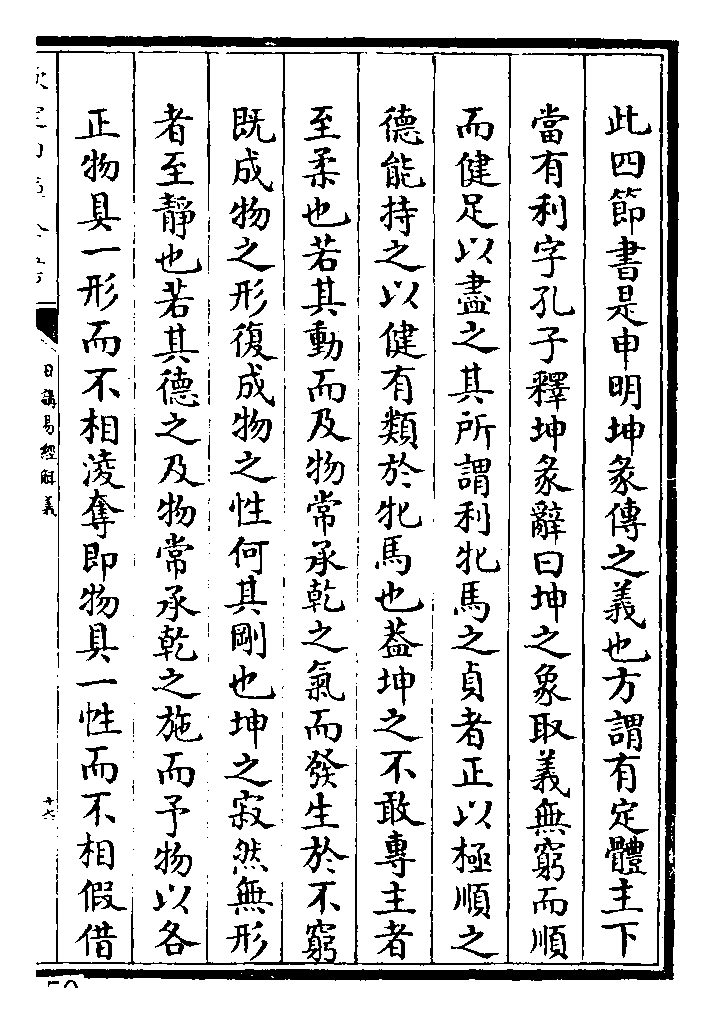 此四節書是申明坤彖傳之義也方謂有定體主下
當有利字孔子釋坤彖辭曰坤之象取義無窮而順
而健足以盡之其所謂利牝馬之貞者正以極順之
德能持之以健有類於牝馬也葢坤之不敢專主者
至柔也若其動而及物常承乾之氣而發生於不窮
既成物之形復成物之性何其剛也坤之寂然無形
者至靜也若其德之及物常承乾之施而予物以各
正物具一形而不相淩奪即物具一性而不相假借
日講易經解義
十六